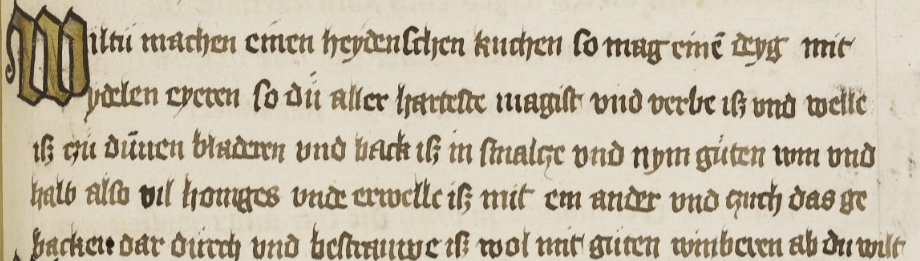 Wiltu machen einen heydenschen kuchen so mag einē deyg mit
ydelen eyeren so du aller harteste magist vnd verbe iß vnd welle
iß czu dūnen bladeren vnd back iß in smalcze vnd nym guten win vnd
halb also vil honiges vnde erwelle iß mit ein ander vnd czuch das ge
backen dar durch vnd bestrauwe iß wol mit guten winberen ab du wilt